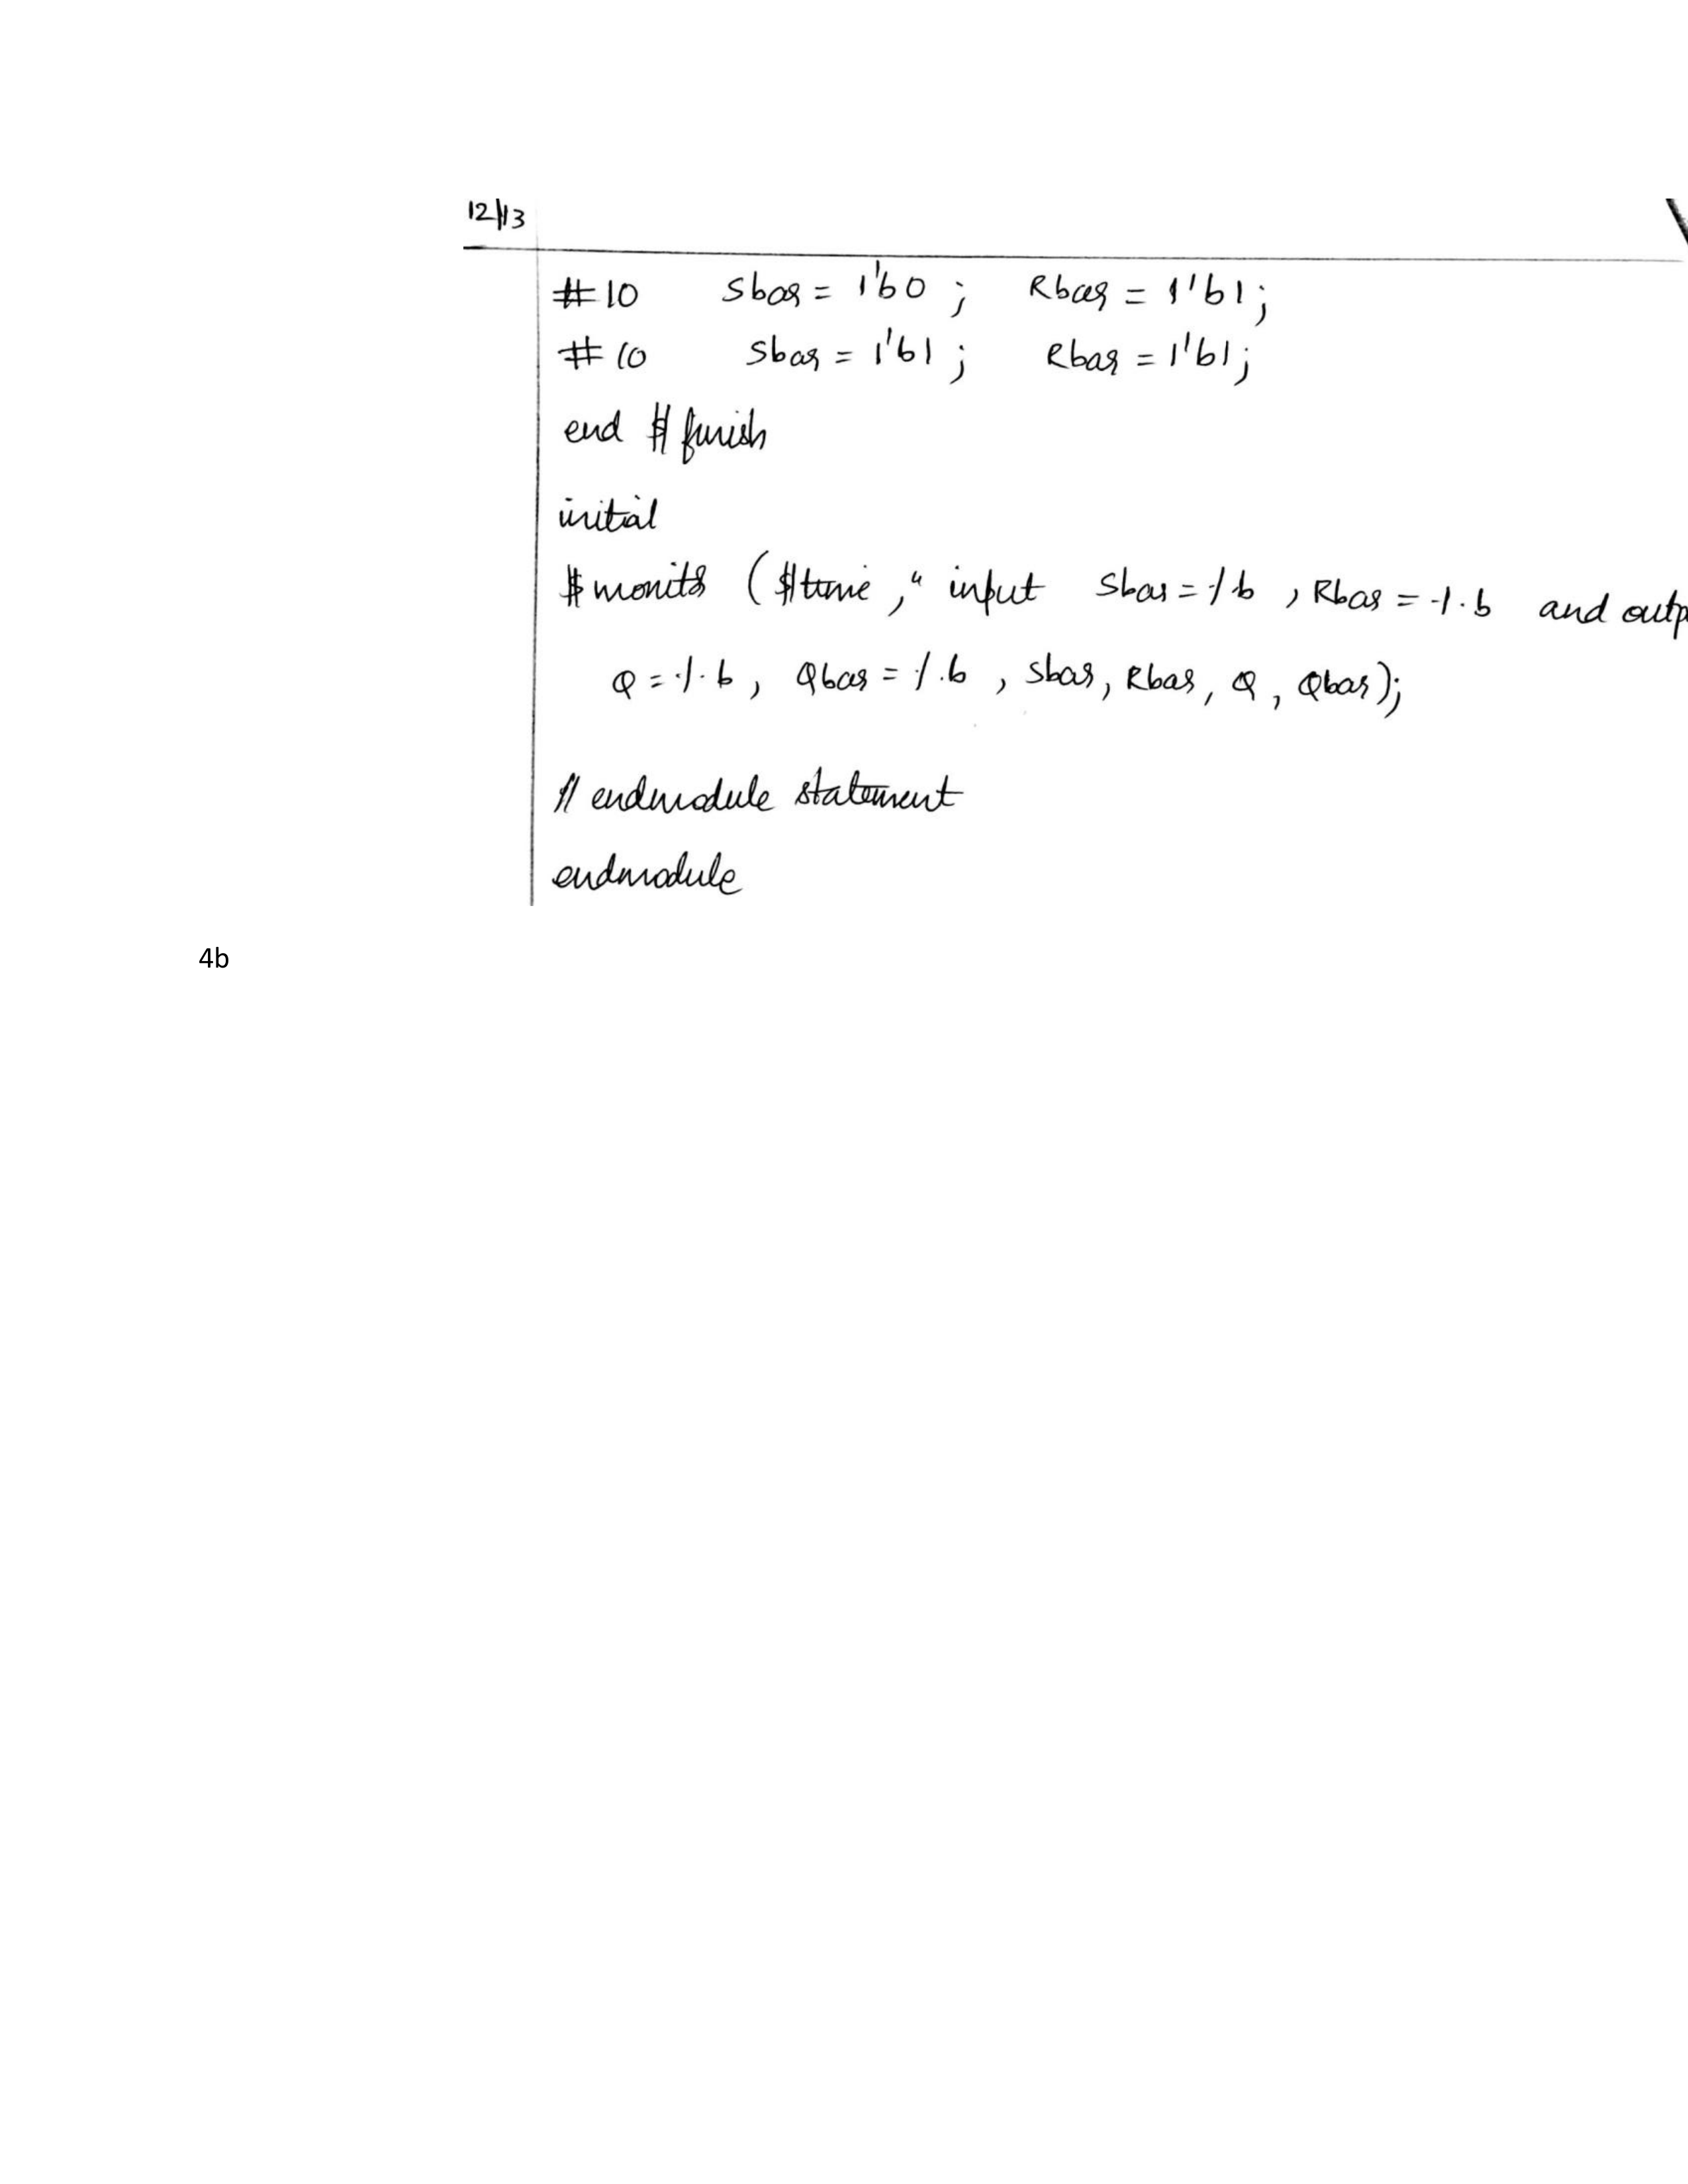 12/13
#10 Sbar = 1'b0 ; Rbar = 1'b1 ;
#10 Sbar = 1'b1 ; Rbar = 1'b1 ;
end $finish
initial
$monitor ($time ," input Sbar = %b , Rbar = %b and outp
Q = %b , Qbar = %b , Sbar, Rbar, Q , Qbar);
// endmodule statement
endmodule
4b